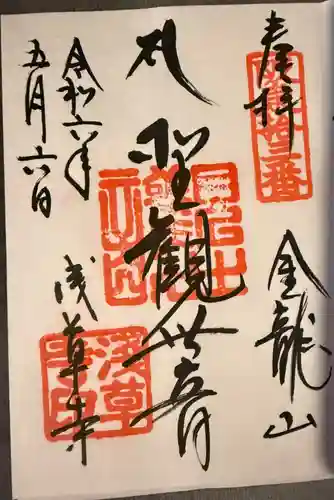 奉拝
坂東十三番
金龍山
聖観世音
令和六年
五月六日
浅草寺
淺草寺印